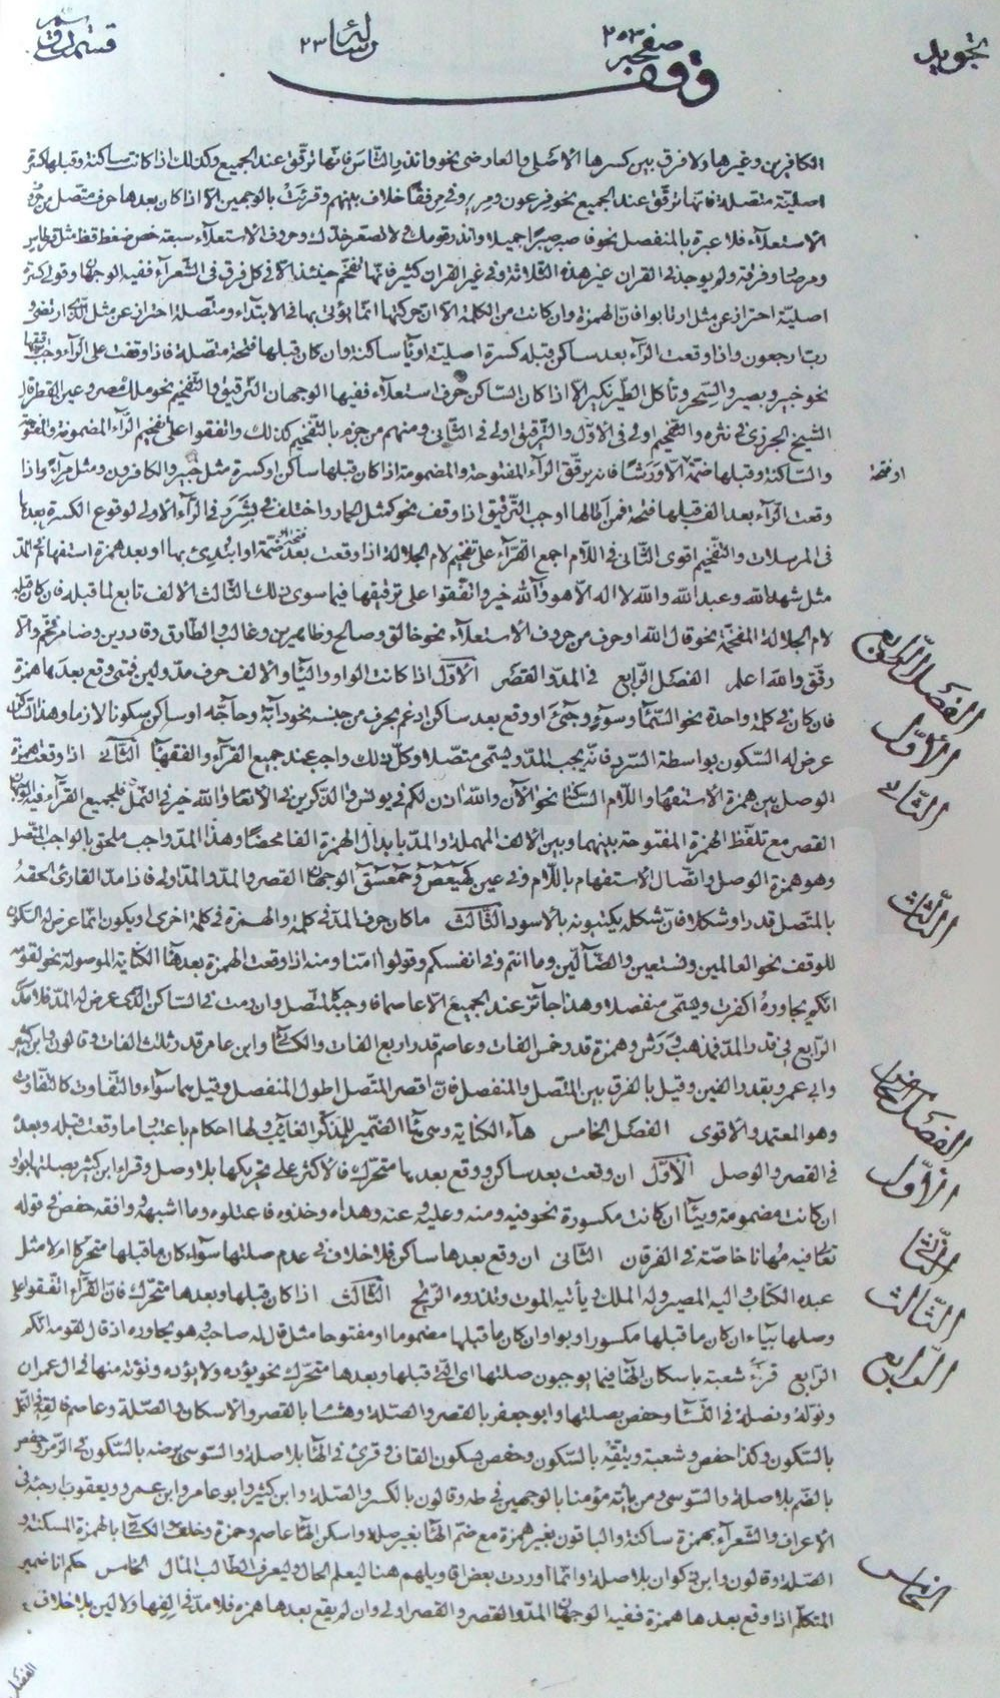 تجويد
صفحه نمبر ٢٥٣
رسالة ٢٣
وقف
الكافرين وغيرها ولا فرق بين كسرها الأصلى والعارضى نحو وانذر الناس فانها ترقق عند الجميع وكذلك اذا كانت ساكنة وقبلها كسرة
اصلية متصلة فانها ترقق عند الجميع نحو فرعون ومرية وفى مرفقا خلاف بينهم وقرئت بالوجهين الا اذا كان بعدها حرف متصل من حروف
الاستعلاء فلا عبرة بالمنفصل نحو فاصبر صبرا جميلا وانذر قومك ولا تصعر خدك وحروف الاستعلاء سبعة خص ضغط قظ مثل قرطاس
ومرصاد وفرقة ولم يوجد فى القران غير هذه الثلاثة وفى غير القران كثير فانها تفخم حينئذ الا فى كل فرق فى الشعراء ففيه الوجهان وقولى كسرة
اصلية احتراز عن مثل ارتابوا فان الهمزة وان كانت من الكلمة الا ان حركتها انما يؤتى بها فى الابتداء ومتصلة احتراز عن مثل الذى ارتضى و
رب ارجعون واذا وقعت الراء بعد ساكن قبله كسرة اصلية او ياء ساكنة وان كان قبلها فتحة متصلة فاذا وقفت على الراء وجب ترقيقها
نحو خبير وبصير والسحر وتأكل الطير نكير الا اذا كان الساكن حرف استعلاء ففيها الوجهان الترقيق والتفخيم نحو ملك مصر وعين القطر قال
الشيخ الجزرى فى نشره والتفخيم اولى فى الاول والترقيق اولى فى الثانى ومنهم من جزم بالتفخيم كذلك واتفقوا على تفخيم الراء المضمومة والمفتوحة
والساكنة وقبلها ضمة الا ورشا فانه يرقق الراء المفتوحة والمضمومة اذا كان قبلها ساكن او كسرة مثل خبير والكافرون ومثل مراء واذا
او فتحة
وقعت الراء بعد الف قبلها فتحة فمن امالها اوجب الترقيق اذا وقف نحو كمثل الحمار واختلف فى بشرر فى الراء الاولى لوقوع الكسرة بعدها
فى المرسلات والتفخيم اقوى الثانى فى اللام اجمع القراء على تفخيم لام الجلالة اذا وقعت بعد فتحة او ضمة او ابتدئ بها او بعد همزة استفهام نحو
مثل شهد الله وعبد الله والله لا اله الا هو وآلله خير واتفقوا على ترقيقها فيما سوى ذلك الثالث الالف تابع لما قبله فان كان قبله
لام الجلالة المفخمة نحو قال الله او حرف من حروف الاستعلاء نحو خالق وصالح وظاهرين وغالب والطارق وقادرين وضامر فخم والا
رقق والله اعلم الفصل الرابع فى المد والقصر الأول اذا كانت الواو والياء والالف حرف مد ولين فمتى وقع بعدها همزة
الفصل الرابع
فان كان فى كلمة واحدة نحو السماء وسوء وجئ او وقع بعد ساكن ادغم بحرف من جنسه نحو دابة وحاجه او ساكن سكونا لازما وهذا الساكن
الأول
عرض له السكون بواسطة السرد فانه يجب المد ويسمى متصلا وكل ذلك واجب عند جميع القراء والفقهاء الثانى اذا وقعت همزة
الثانى
الوصل بين همزة الاستفهام واللام الساكنة نحو الآن والله اذن لكم فى يونس والذكرين فى الانعام والله خير فى النمل فلجميع القراء فيه الوجهان
القصر مع تلفظ الهمزة المفتوحة بينهما وبين الالف المهملة والمد بابدال الهمزة الفا محضا وهذا المد واجب ملحق بالواجب المتصل
وهو همزة الوصل واتصال الاستفهام باللام وفى عين كهيعص وحمعسق الوجهان القصر والمد والمد اولى فاذا مد القارئ الحقه
بالمتصل قدرا وشكلا فان شكله يكتبونه بالاسود الثالث ما كان حرف المد فى كلمة والهمزة فى كلمة اخرى او يكون انما عرض له السكون
الثالث
للوقف نحو العالمين ونستعين والضالين وما انتم وفى انفسكم وقولوا امنا ومنه اذا وقعت الهمزة بعد هاء الكناية الموصولة نحو لقومه
انكم يحاوره اكفرت ويسمى منفصلا وهذا جائز عند الجميع الا عاصما فاوجبه كالمتصل وان رمت فى الساكن الذى عرض له المد فلا مد
الرابع فى قدر المد فمذهب ورش وهمزة قدر خمس الفات وعاصم قدر اربع الفات والكسائى وابن عامر قدر ثلث الفات وقالون وابن كثير
وابى عمرو بقدر الفين وقيل بالفرق بين المتصل والمنفصل فان اقصر المتصل اطول المنفصل وقيل هما سواء والتفاوت كالتفاوت
وهو المعتمد والاقوى الفصل الخامس هاء الكناية وسى هاء الضمير للمذكر الغائب ولها احكام باعتبار ما وقعت قبله وبعده
الفصل الخامس
فى القصر والوصل الأول ان وقعت بعد ساكن ووقع بعدها متحرك فالاكثر على تحريكها بلا وصل وقراء ابن كثير بصلتها بواو
الأول
ان كانت مضمومة وبياء ان كانت مكسورة نحو فيه ومنه وعليه وعنه وهداه وخذوه فاعتلوه وما اشبهه ووافقه حفص فى قوله
تعالى فيه مهانا خاصة فى الفرقان الثانى ان وقع بعدها ساكن فلا خلاف فى عدم صلتها سواء كان ما قبلها متحركا او لا مثل
الثانى
عبده الكتاب واليه المصير وله الملك ويأتيه الموت وتذروه الريح الثالث اذا كان قبلها وبعدها متحرك فان القراء اتفقوا على
الثالث
وصلها بياء ان كان ما قبلها مكسورا وبواو ان كان ما قبلها مضموما او مفتوحا مثل قال له صاحبه وهو يحاوره اذ قال لقومه انكم
الرابع قرء شعبة باسكان الهاء فيما يوجبون صلتها اى التى قبلها وبعدها متحرك نحو يؤده ولا يؤده ونؤته منها فى ال عمران
الرابع
ونوله ونصله فى النساء وحفص بصلتها وابو جعفر بالقصر والصلة وهشام بالقصر والاسكان والصلة وعاصم فالقه فى النمل
بالسكون وكذا حفص وشعبة ويتقه بالسكون وحفص بسكون القاف وقرئ فى الهاء بلا صلة والسوسى يرضه بالسكون فى الزمر وحفص
بالضم بلا صلة والسوسى ومن يأته مؤمنا بالوجهين فى طه وقالون بالكسر والصلة وابن كثير وابو عامر وابن عمرو ويعقوب ارجئه فى
الاعراف والشعراء بهمزة ساكنة والباقون بغير همزة مع ضم الهاء بغير صلة واسكن الهاء عاصم وحمزة وخلف الكسائى بالهمزة المسكنة و
الصلة وقالون وابن ذكوان بلا صلة وانما اوردت بعض اقاويلهم هنا ليعلم الحال وليعرف الطالب المآل الخامس حكم انا ضمير
الخامس
المتكلم اذا وقع بعدها همزة ففيه الوجهان المد والقصر والقصر اولى وان لم يقع بعدها همزة فلا مد فى الفها ولا لين بلا خلاف
الفصل